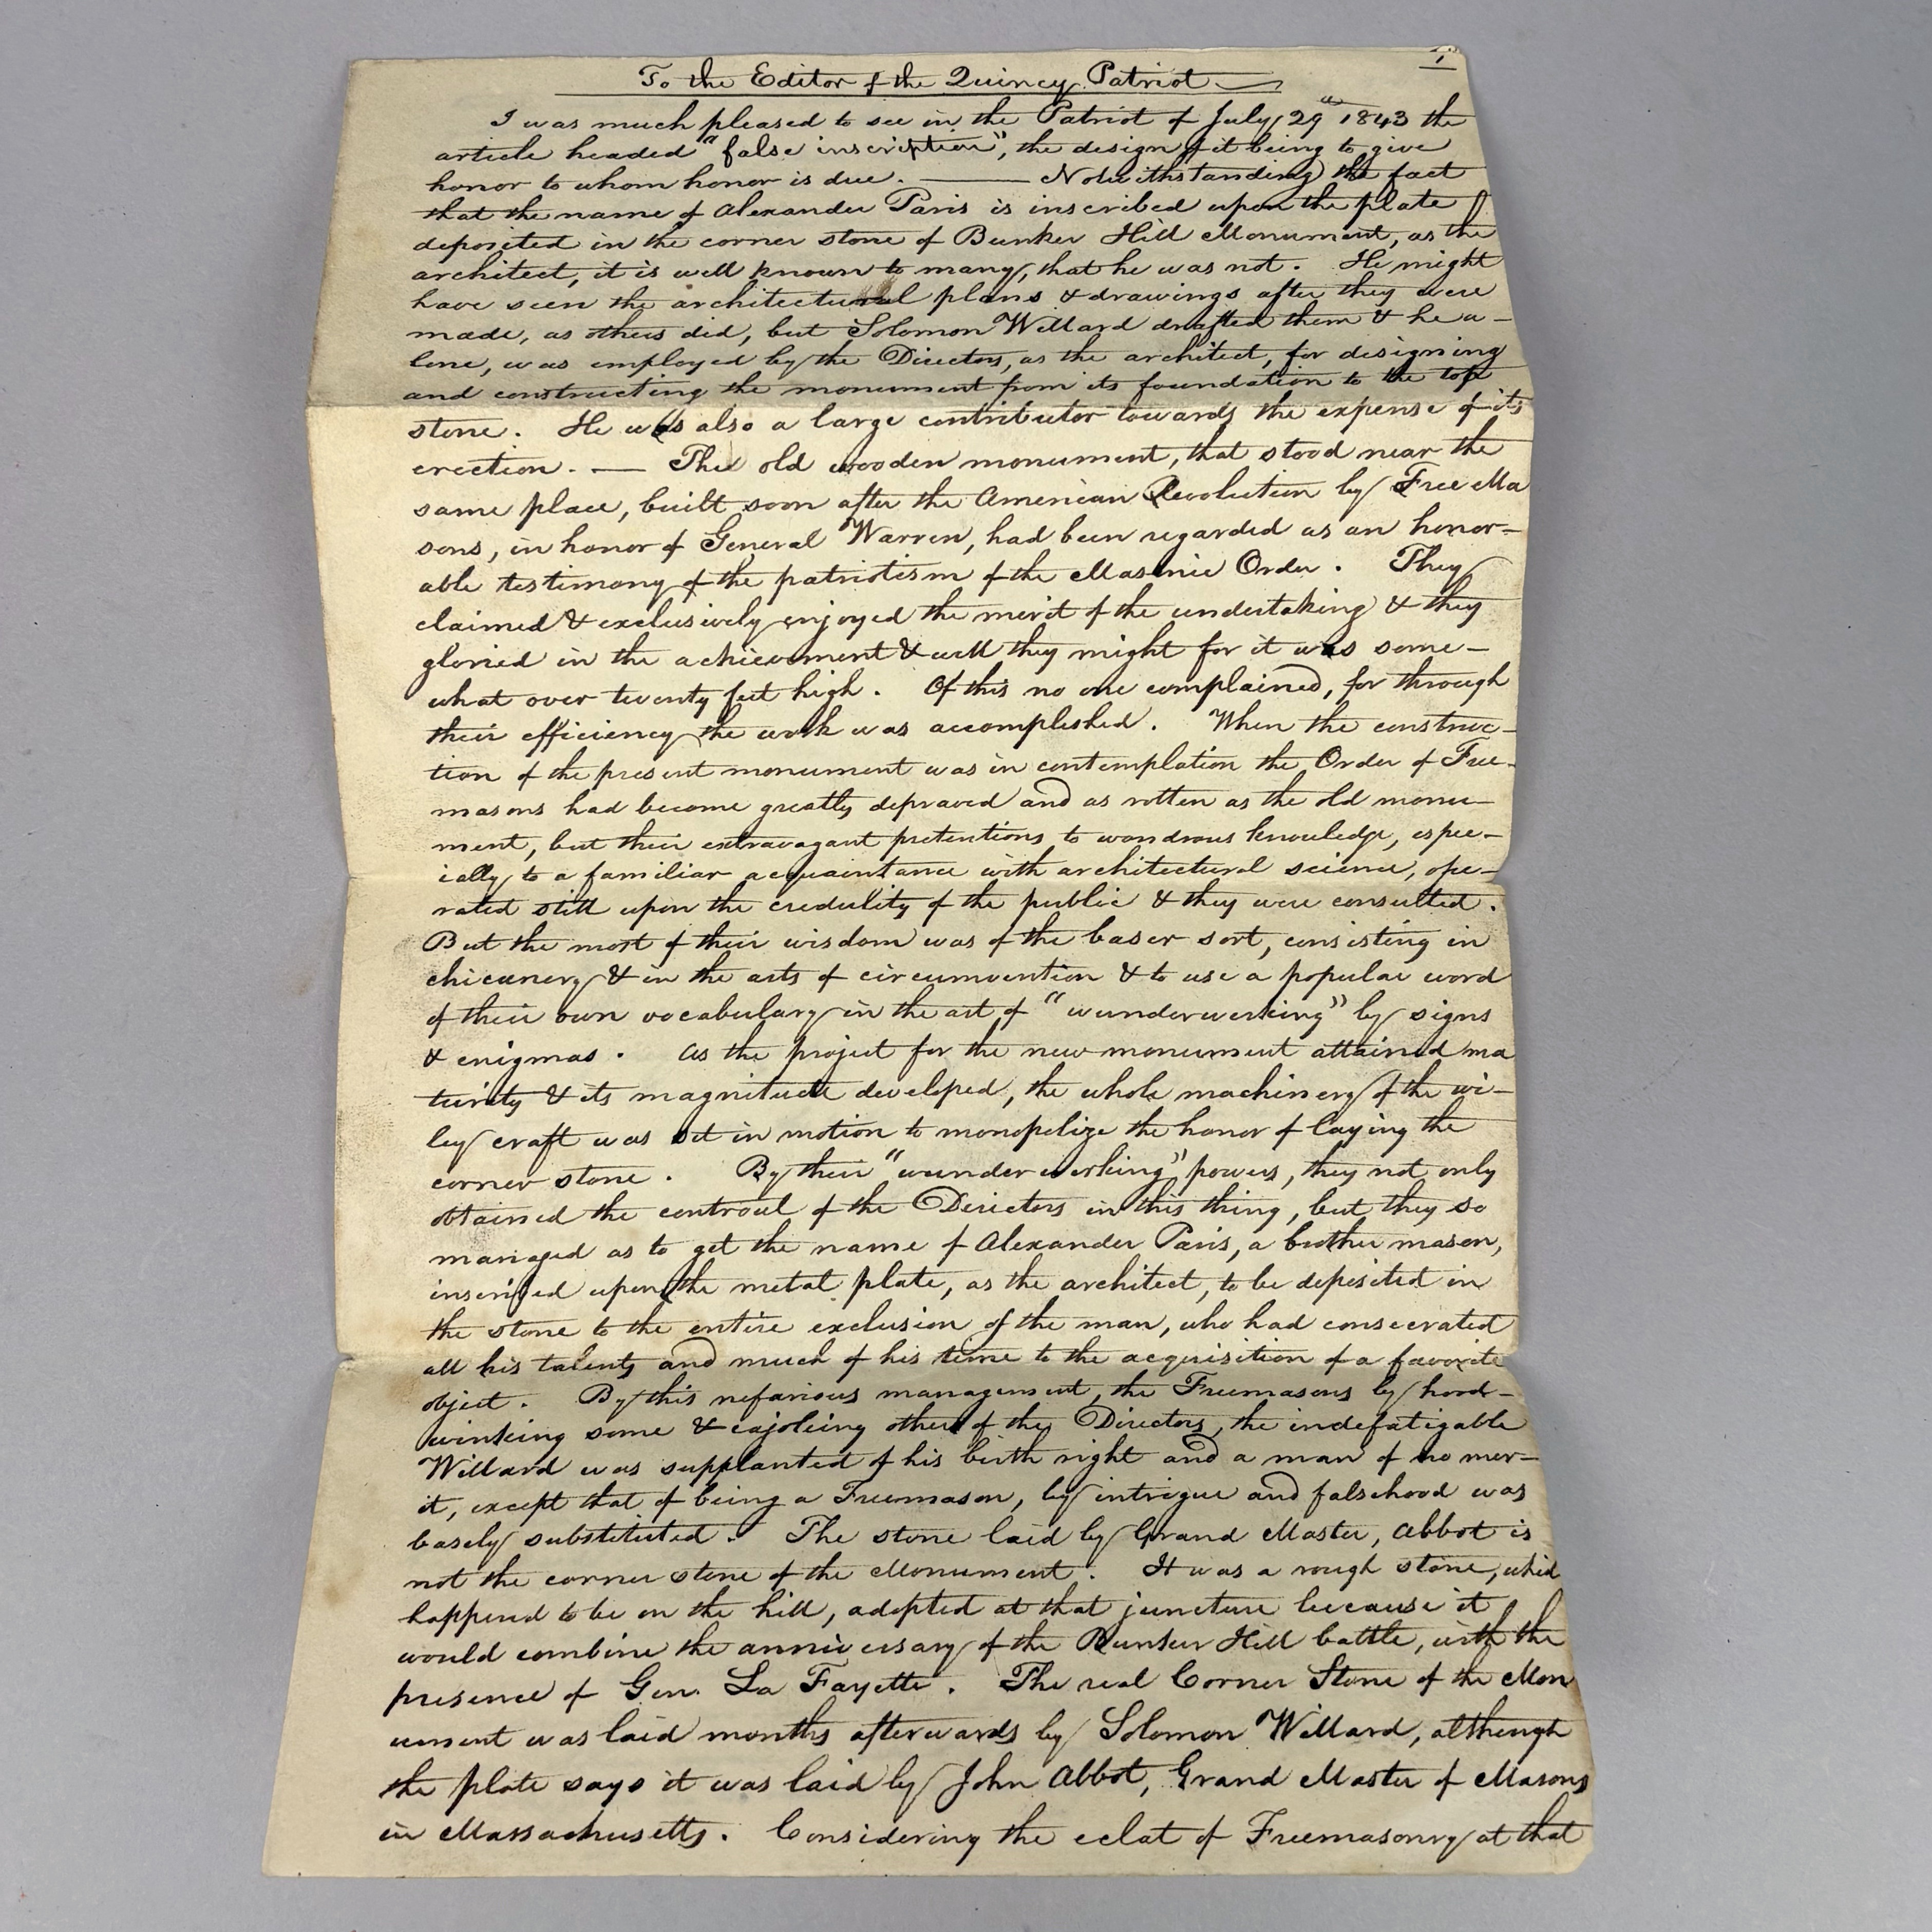 1,
To the Editor of the Quincy Patriot —
I was much pleased to see in the Patriot of July 29th 1843 the
article headed "false inscription", the design of it being to give
honor to whom honor is due. —— Notwithstanding the fact
that the name of Alexander Paris is inscribed upon the plate
deposited in the corner stone of Bunker Hill Monument, as the
architect, it is well known to many, that he was not. He might
have seen the architectural plans & drawings after they were
made, as others did, but Solomon Willard drafted them & he a-
lone, was employed by the Directors, as the architect, for designing
and constructing the monument from its foundation to the top
stone. He was also a large contributor towards the expense of its
erection. — The old wooden monument, that stood near the
same place, built soon after the American Revolution by Free Ma
sons, in honor of General Warren, had been regarded as an honor-
able testimony of the patriotism of the Masonic Order. They
claimed & exclusively enjoyed the merit of the undertaking & they
gloried in the achievement & well they might for it was some-
what over twenty feet high. Of this no one complained, for through
their efficiency the work was accomplished. When the construc-
tion of the present monument was in contemplation the Order of Free-
masons had become greatly depraved and as rotten as the old monu-
ment, but their extravagant pretentions to wondrous knowledge, espec-
ially to a familiar acquaintance with architectural science, ope-
rated still upon the credulity of the public & they were consulted.
But the most of their wisdom was of the baser sort, consisting in
chicanery & in the arts of circumvention & to use a popular word
of their own vocabulary in the art of "wunderwerking" by signs
& enigmas. As the project for the new monument attained ma
turity & its magnitude developed, the whole machinery of the wi-
ley craft was set in motion to monopolize the honor of laying the
corner stone. By their "wunderwerking" powers, they not only
obtained the controul of the Directors in this thing, but they so
managed as to get the name of Alexander Paris, a brother mason,
inscribed upon the metal plate, as the architect, to be deposited in
the stone to the entire exclusion of the man, who had consecrated
all his talents and much of his time to the acquisition of a favorite
object. By this nefarious management, the Freemasons by hood-
winking some & cajoling others of the Directors, the indefatigable
Willard was supplanted of his birth right and a man of no mer-
it, except that of being a Freemason, by intrigue and falsehood was
basely substituted. The stone laid by Grand Master, Abbot is
not the corner stone of the Monument. It was a rough stone, which
happened to be on the hill, adopted at that juncture because it
would combine the anniversary of the Bunker Hill battle, with the
presence of Gen. La Fayette. The real Corner Stone of the Mon
ument was laid months afterwards by Solomon Willard, although
the plate says it was laid by John Abbot, Grand Master of Masons
in Massachusetts. Considering the eclat of Freemasonry at that